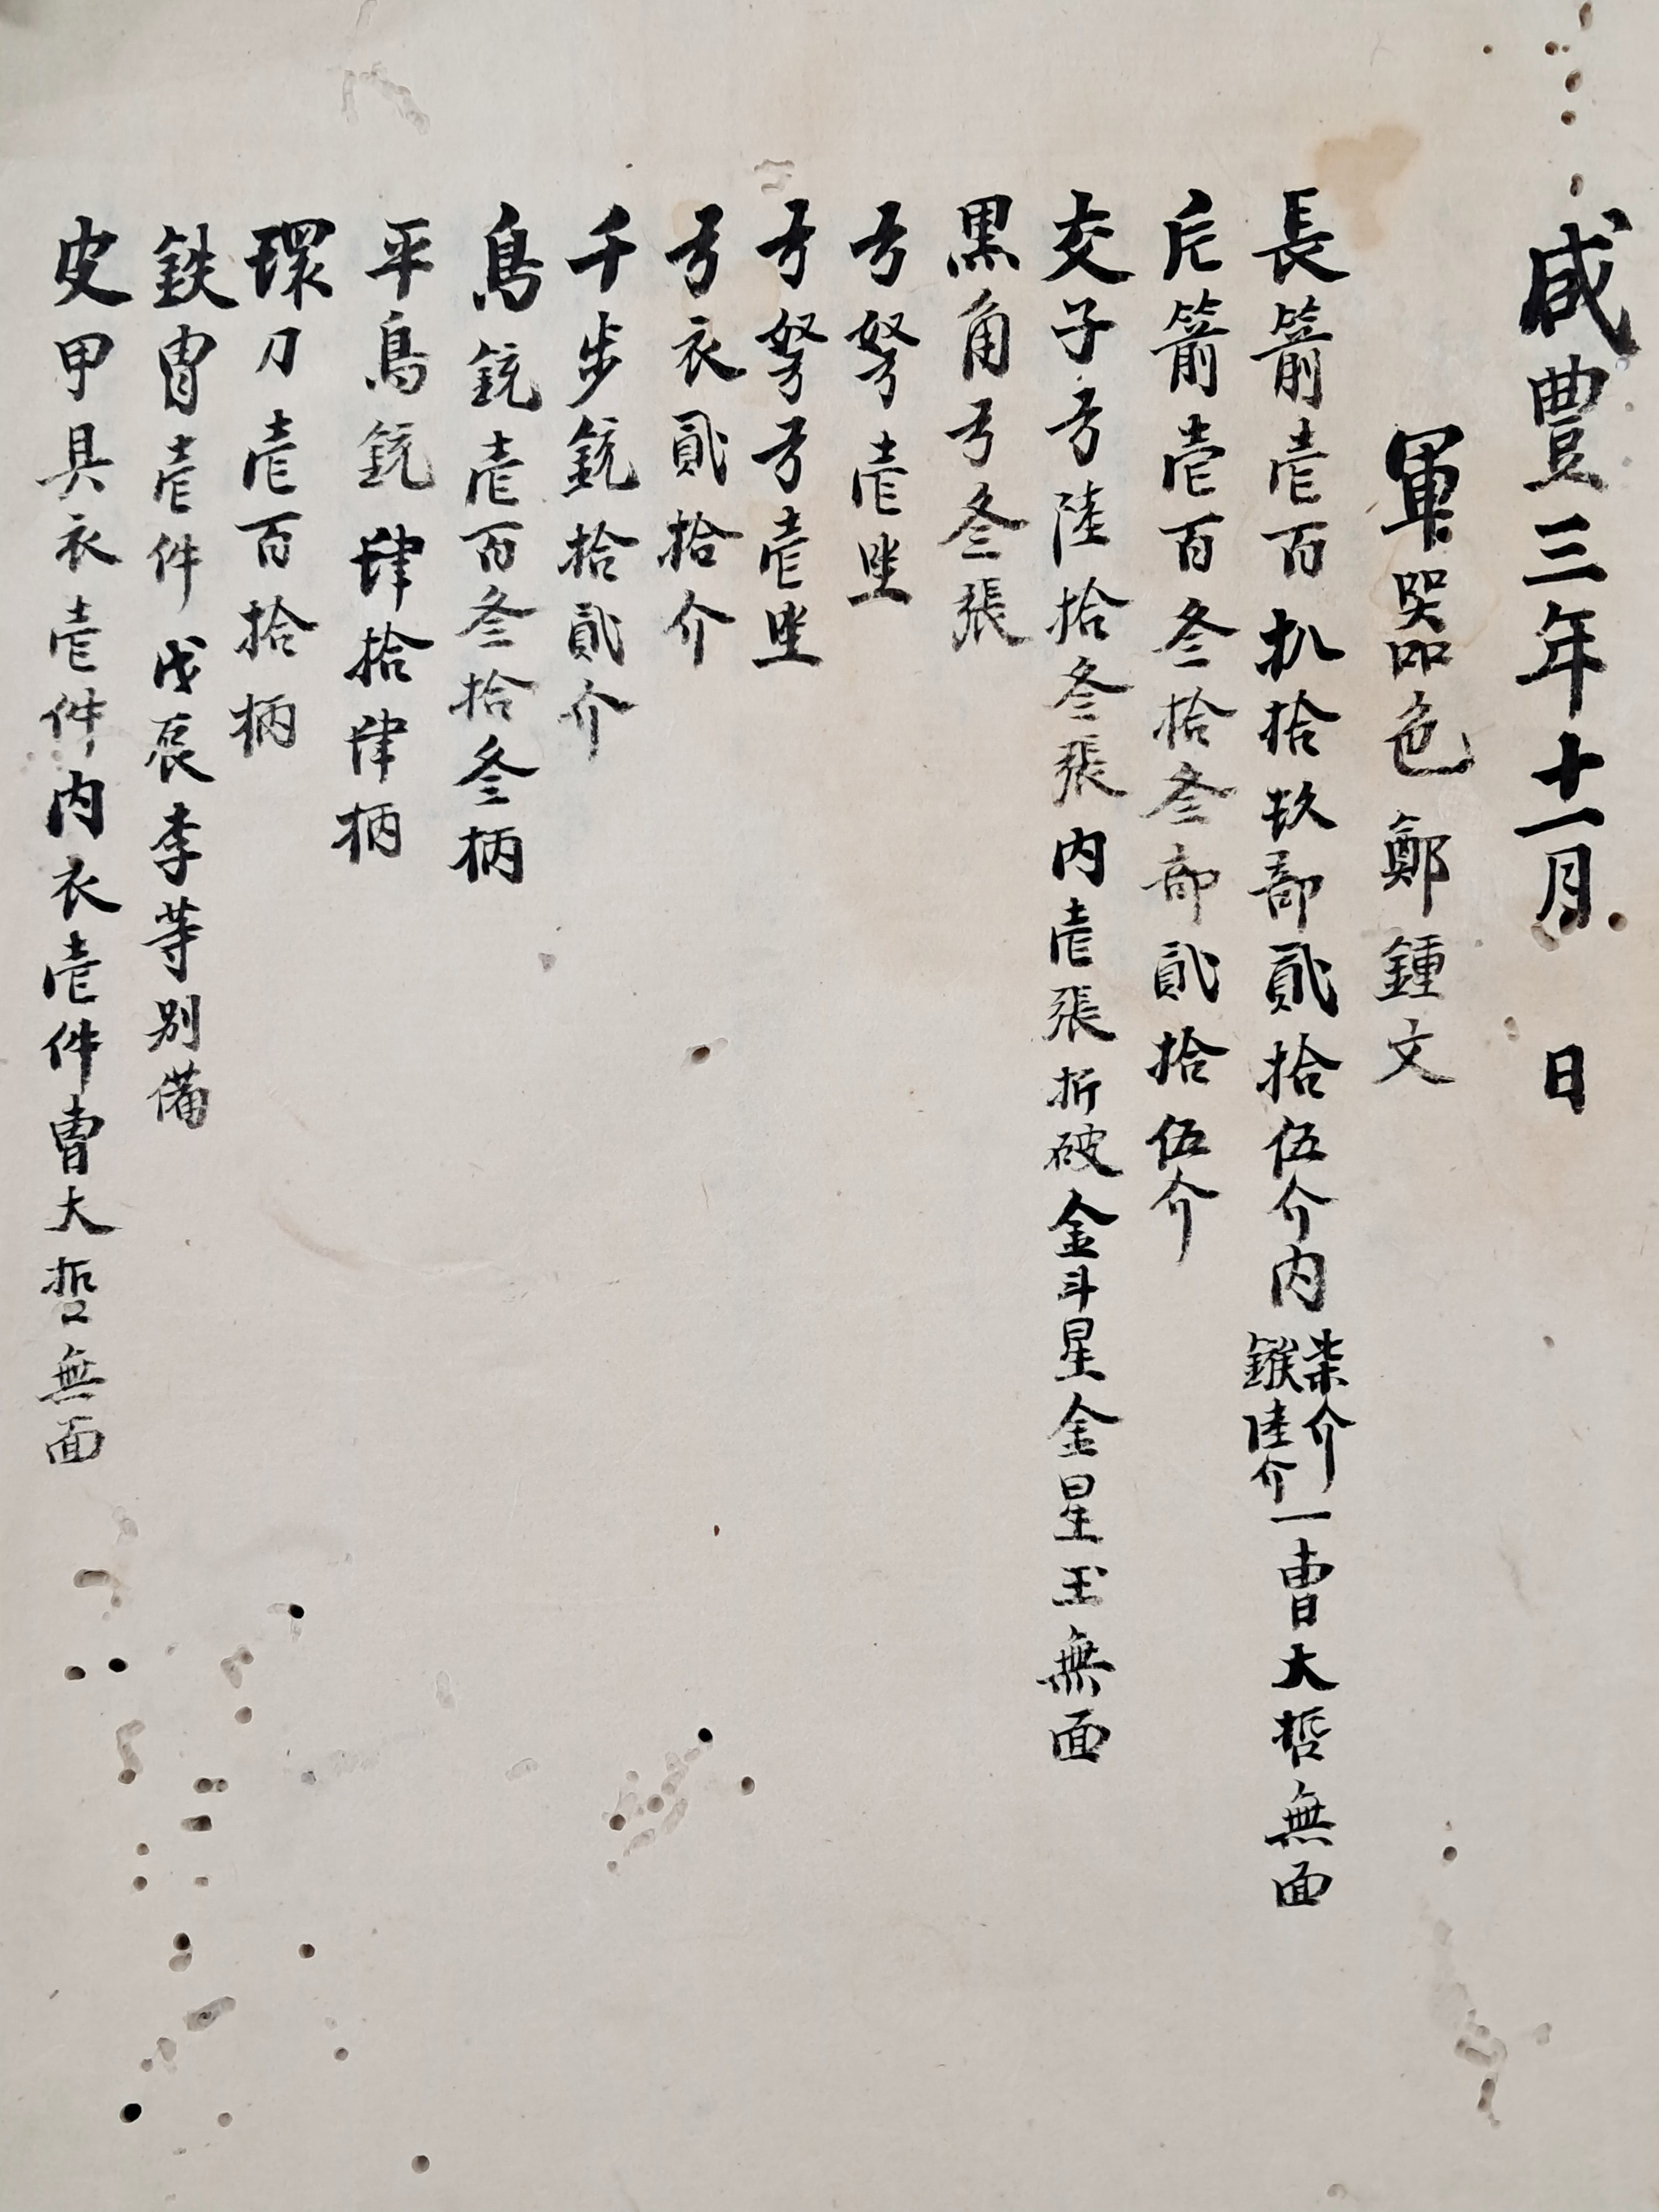 咸豊三年十一月　日
軍器色　鄭鍾文
長箭壱百扒拾玖部貳拾伍介内柒介鏃陸介一曺大哲無面
片箭壱百叁拾叁部貳拾伍介
交子弓陸拾叁張内壱張折破金斗星金星玉無面
黒角弓叁張
弓弩壱坐
弓弩弓壱坐
弓衣貳拾介
千步銃拾貳介
鳥銃壱百叁拾叁柄
平鳥銃肆拾肆柄
環刀壱百拾柄
鉄冑壱件戊辰李等別備
皮甲具衣壱件内衣壱件曺大哲無面